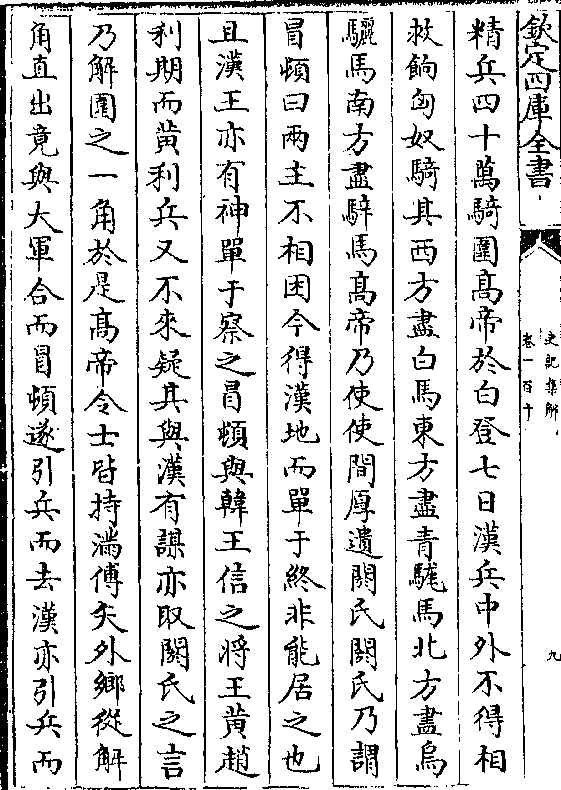 欽定四庫全書
史記集解
卷一百十
九
精兵四十萬騎圍髙帝於白登七日漢兵中外不得相
救餉匈奴騎其西方盡白馬東方盡青駹馬北方盡烏
驪馬南方盡騂馬髙帝乃使使間厚遺閼氏閼氏乃謂
冒頓曰兩主不相困今得漢地而單于終非能居之也
且漢王亦有神單于察之冒頓與韓王信之將王黄趙
利期而黄利兵又不來疑其與漢有謀亦取閼氏之言
乃解圍之一角於是髙帝令士皆持滿傅矢外鄉從解
角直出竟與大軍合而冒頓遂引兵而去漢亦引兵而